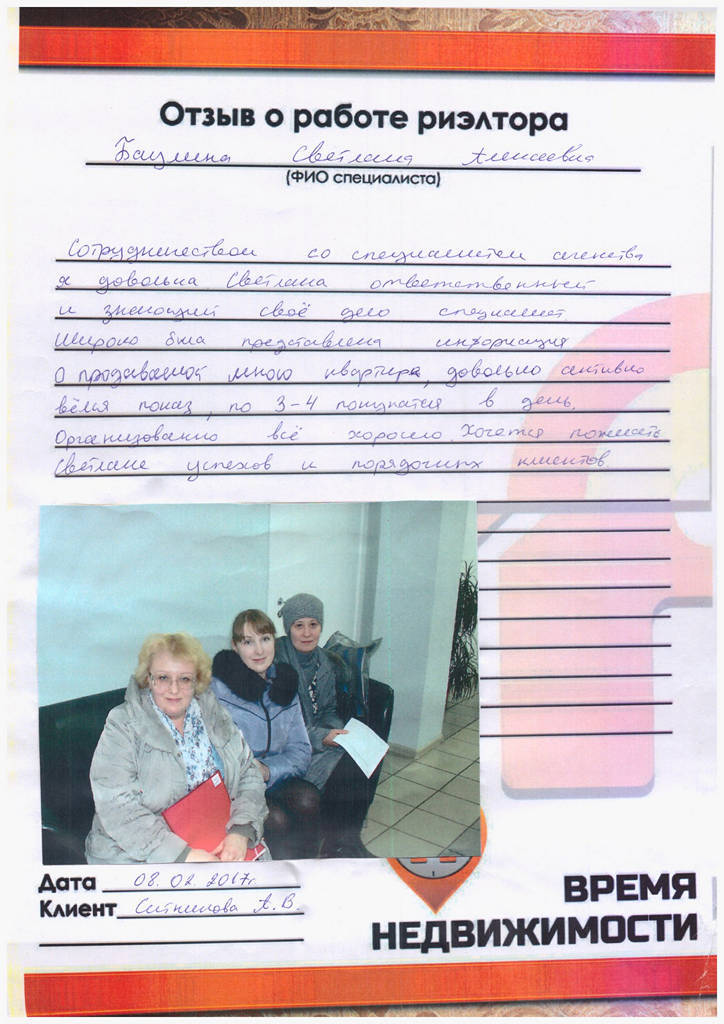 Отзыв о работе риэлтора
Баулина Светлана Алексеевна
(ФИО специалиста)
Сотрудничеством со специалистом агенства
я довольна Светлана ответственный
и знающий своё дело специалист.
Широко была представлена информация
о продаваемой мною квартире, довольно активно
вёлся показ, по 3-4 покупателя в день.
Организованно всё хорошо. Хочется пожелать
Светлане успехов и порядочных клиентов.
Дата 08.02.2017г.
Клиент Ситникова А.В.
ВРЕМЯ
НЕДВИЖИМОСТИ